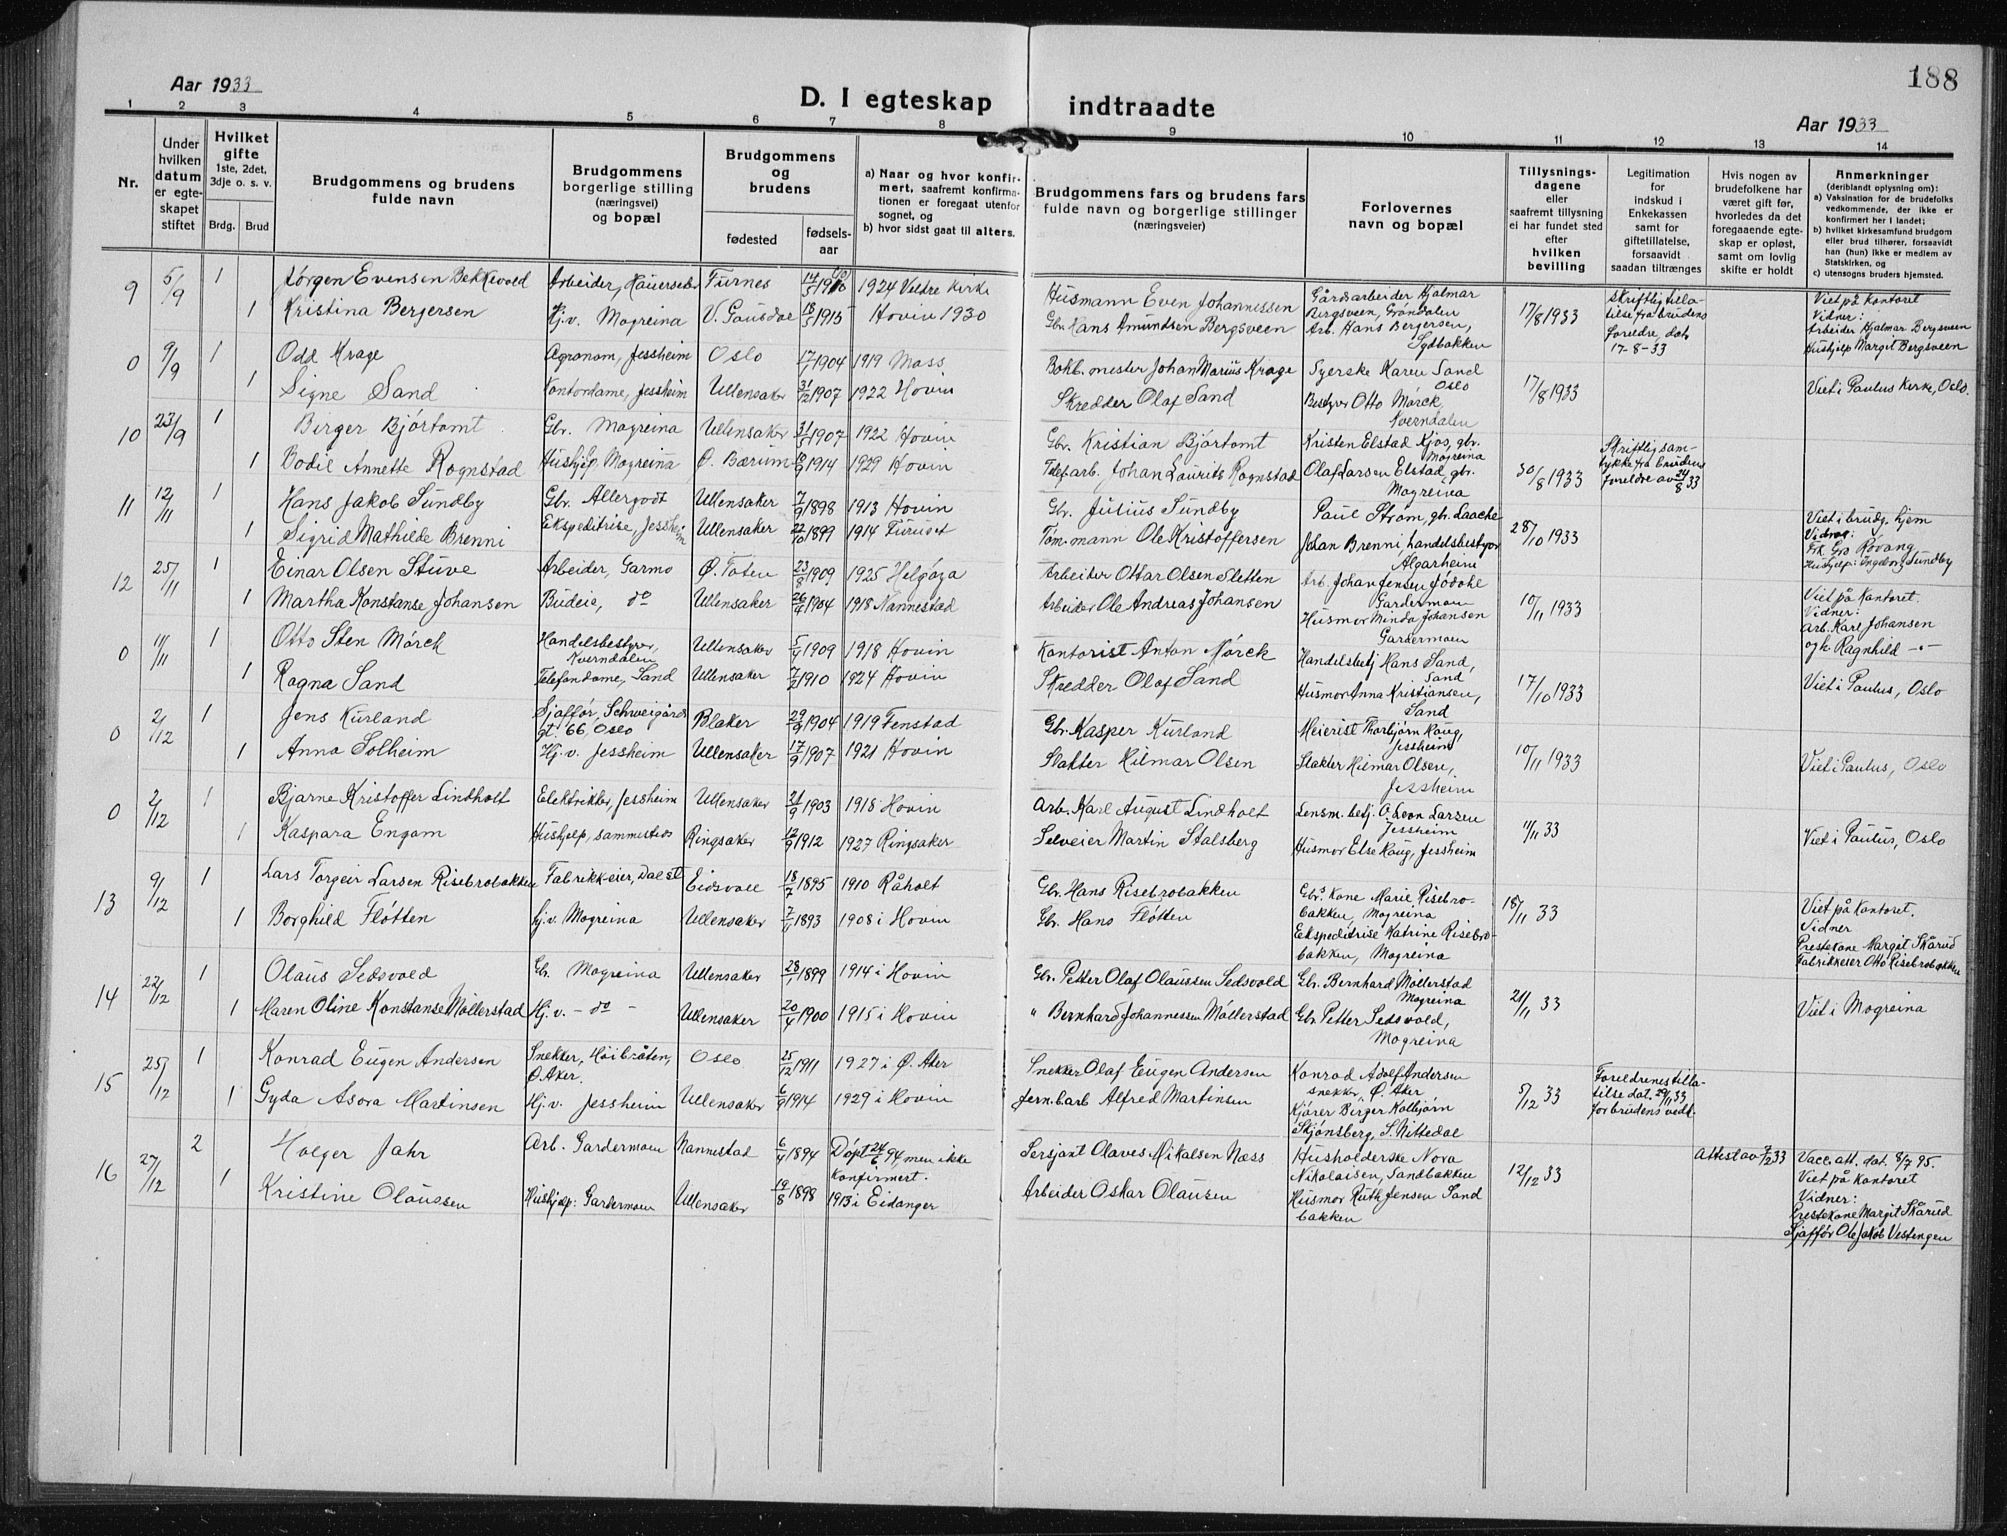 188
Aar 1933
D. I egteskap indtraadte
Aar 1933
1 2 3 4 5 6 7 8 9 10 11 12 13 14
Nr.
Under hvilken datum er egteskapet stiftet
Hvilket gifte
1ste, 2det, 3dje o. s. v.
Brdg. Brud
Brudgommens og brudens fulde navn
Brudgommens borgerlige stilling (næringsvei) og bopæl
Brudgommens og brudens
fødested
fødselsaar
a) Naar og hvor konfirmert, saafremt konfirmationen er foregaat utenfor sognet, og
b) hvor sidst gaat til alters.
Brudgommens fars og brudens fars fulde navn og borgerlige stillinger (næringsveier)
Forlovernes navn og bopæl
Tillysningsdagene eller saafremt tillysning ei har fundet sted efter hvilken bevilling
Legitimation for indskud i Enkekassen samt for giftetillatelse, forsaavidt saadan tiltrænges
Hvis nogen av brudefolkene har været gift før, hvorledes da det foregaaende egteskap er opløst, samt om lovlig skifte er holdt
Anmerkninger
(deriblandt oplysning om):
a) Vaksination for de brudefolks vedkommende, der ikke er konfirmert her i landet;
b) hvilket kirkesamfund brudgom eller brud tilhører, forsaavidt han (hun) ikke er medlem av Statskirken, og
c) utensogns bruders hjemsted.
9 5/9 1 Jørgen Evensen Bekkevold Arbeider, Hauerseter Furnes 14/5 1910 1924 Veldre Kirke Husmann Even Johannessen Gårdsarbeider Hjalmar Bergsveen, Grøndalen
1 Kristina Bergersen Hj.v. Mogreina V. Gausdal 18/5 1915 Hovin 1930 Gbr. Hans Amundsen Bergsveen Arb. Hans Bergersen, Sydbakken 17/8 1933 Skriftlig tillatelse fra brudens foreldre, dat. 17-8-33 Viet på Kontoret Vidner: Arbeider Hjalmar Bergsveen Hushjelp Margit Bergsveen
0 9/9 1 Odd Krage Agronom, Jessheim Oslo 17/1 1904 1919 Moss Bokb. mester Johan Marius Krage Syerske Karen Sand Oslo
1 Signe Sand Kontordame, Jessheim Ullensaker 31/12 1907 1922 Hovin Skredder Olaf Sand Bestyrer Otto Mørck, Kverndalen 17/8 1933 Viet i Paulus Kirke, Oslo.
10 23/9 1 Birger Bjørtomt Gbr. Mogreina Ullensaker 31/5 1907 1922 Hovin Gbr. Kristian Bjørtomt Kristen Elstad Kjos, gbr. Mogreina
1 Bodil Annette Rognstad Hushjelp. Mogreina Ø. Bærum 1914 1929 Hovin Telef.arb. Johan Laurits Rognstad Olaf Larsen Elstad, gbr. Mogreina 30/8 1933 Skriftlig samtykke fra brudens foreldre av 24/8 33
11 12/11 1 Hans Jakob Sundby Gbr. Allergodt Ullensaker 7/9 1898 1913 Hovin Gbr. Julius Sundby Paul Strøm, gbr. Laache
1 Sigrid Mathilde Brenni Ekspeditrise, Jessheim Ullensaker 22/10 1899 1914 Furuset Tømmann Ole Kristoffersen Johan Brenni, handelsbestyrer Algarheim 28/10 1933 Viet i brudg. hjem Vidner: Frk. Gro Rovang Hushjelp: Ingeborg Sundby
12 25/11 1 Einar Olsen Stuve Arbeider, Garmo Ø. Toten 23/8 1909 1925 Helgøya Arbeider Ottar Olsen Sletten Arb. Johan Jensen Jødahl Gardermoen
1 Martha Konstanse Johansen Budeie, do Ullensaker 26/4 1904 1918 Nannestad Arbeider Ole Andreas Johansen Husmor Minda Johansen Gardermoen 10/11 1933 Viet på Kontoret. Vidner: Arb. Karl Johansen og h. Ragnhild -"-
0 11/11 1 Otto Sten Mørck Handelsbestyrer, Kverndalen Ullensaker 5/4 1909 1918 Hovin Kontorist Anton Mørck Handelsbetj. Hans Sand, Sand
1 Ragna Sand Telefondame, Sand Ullensaker 7/2 1910 1924 Hovin Skredder Olaf Sand Husmor Anna Kristiansen, Sand 17/10 1933 Viet i Paulus, Oslo
0 2/12 1 Jens Kurland Sjaffør, Schweigårds gt. 66, Oslo Blaker 29/9 1904 1919 Fenstad Gbr. Kasper Kurland Meierist Thorbjørn Haug, Jessheim
1 Anna Solheim Hj.v. Jessheim Ullensaker 17/9 1907 1921 Hovin Slakter Hilmar Olsen Slakter Hilmar Olsen, Jessheim 10/11 1933 Viet i Paulus, Oslo
0 2/12 1 Bjarne Kristoffer Lindholt Elektriker, Jessheim Ullensaker 21/9 1903 1918 Hovin Arb. Karl August Lindholt Lensm. betj. O. Leon Larsen Jessheim
1 Kaspara Engom Hushjelp, sammesteds Ringsaker 12/9 1912 1927 Ringsaker Selveier Martin Stalsberg Husmor Else Haug, Jessheim 11/11 33 Viet i Paulus, Oslo
13 9/12 1 Lars Torgeir Larsen Risebrobakken Fabrikkeier, Dal st Eidsvoll 18/7 1895 1910 Råholt Gbr. Hans Risebrobakken Gbr.s Kone Marie Risebrobakken, Mogreina
1 Borghild Fløtten Hj.v. Mogreina Ullensaker 7/11 1893 1908 i Hovin Gbr. Hans Fløtten Ekspeditrise Katrine Risebrobakken, Mogreina 18/11 33 Viet på Kontoret. Vidner Prestekone Margit Skårud Fabrikkeier Otto Risebrobakken
14 22/12 1 Olaus Sedsvold Gbr. Mogreina Ullensaker 28/1 1899 1914 i Hovin Gbr. Petter Olaf Olaussen Sedsvold Gbr. Bernhard Møllerstad Mogreina
1 Maren Oline Konstanse Møllerstad Hj.v. - do - Ullensaker 20/4 1900 1915 i Hovin " Bernhard Johannessen Møllerstad Gbr. Petter Sedsvold, Mogreina 21/11 33 Viet i Mogreina
15 25/12 1 Konrad Eugen Andersen Snekker, Høibråten, Ø. Aker. Oslo 25/12 1911 1927 i Ø. Aker Snekker Olaf Eugen Andersen Konrad Adolf Andersen snekker, Ø. Aker
1 Gyda Asora Martinsen Hj.v. Jessheim Ullensaker 6/9 1914 1929 i Hovin Jernb.arb Alfred Martinsen Kjører Birger Kolbjørn Skjønsberg, S. Nittedal 5/12 33 Foreldrenes tillatelse dat. 29/11 33 for brudens vedk.
16 27/12 2 Holger Jahr Arb. Gardermoen Nannestad 6/4 1894 Døpt 24/6 94, men ikke konfirmert. Sersjant Olaves Mikalsen Næss Husholderske Nora Nikolaisen, Sandbakken
1 Kristine Olaussen Hushjelp: Gardermoen Ullensaker 19/8 1898 1913 i Eidanger Arbeider Oskar Olausen Husmor Ruth Jensen Sandbakken 12/12 33 Attest av 7/2 33 Vacc. att. dat. 8/7 95. Viet på Kontoret Vidner: Prestekone Margit Skårud Sjaffør Ole Jakob Vestengen